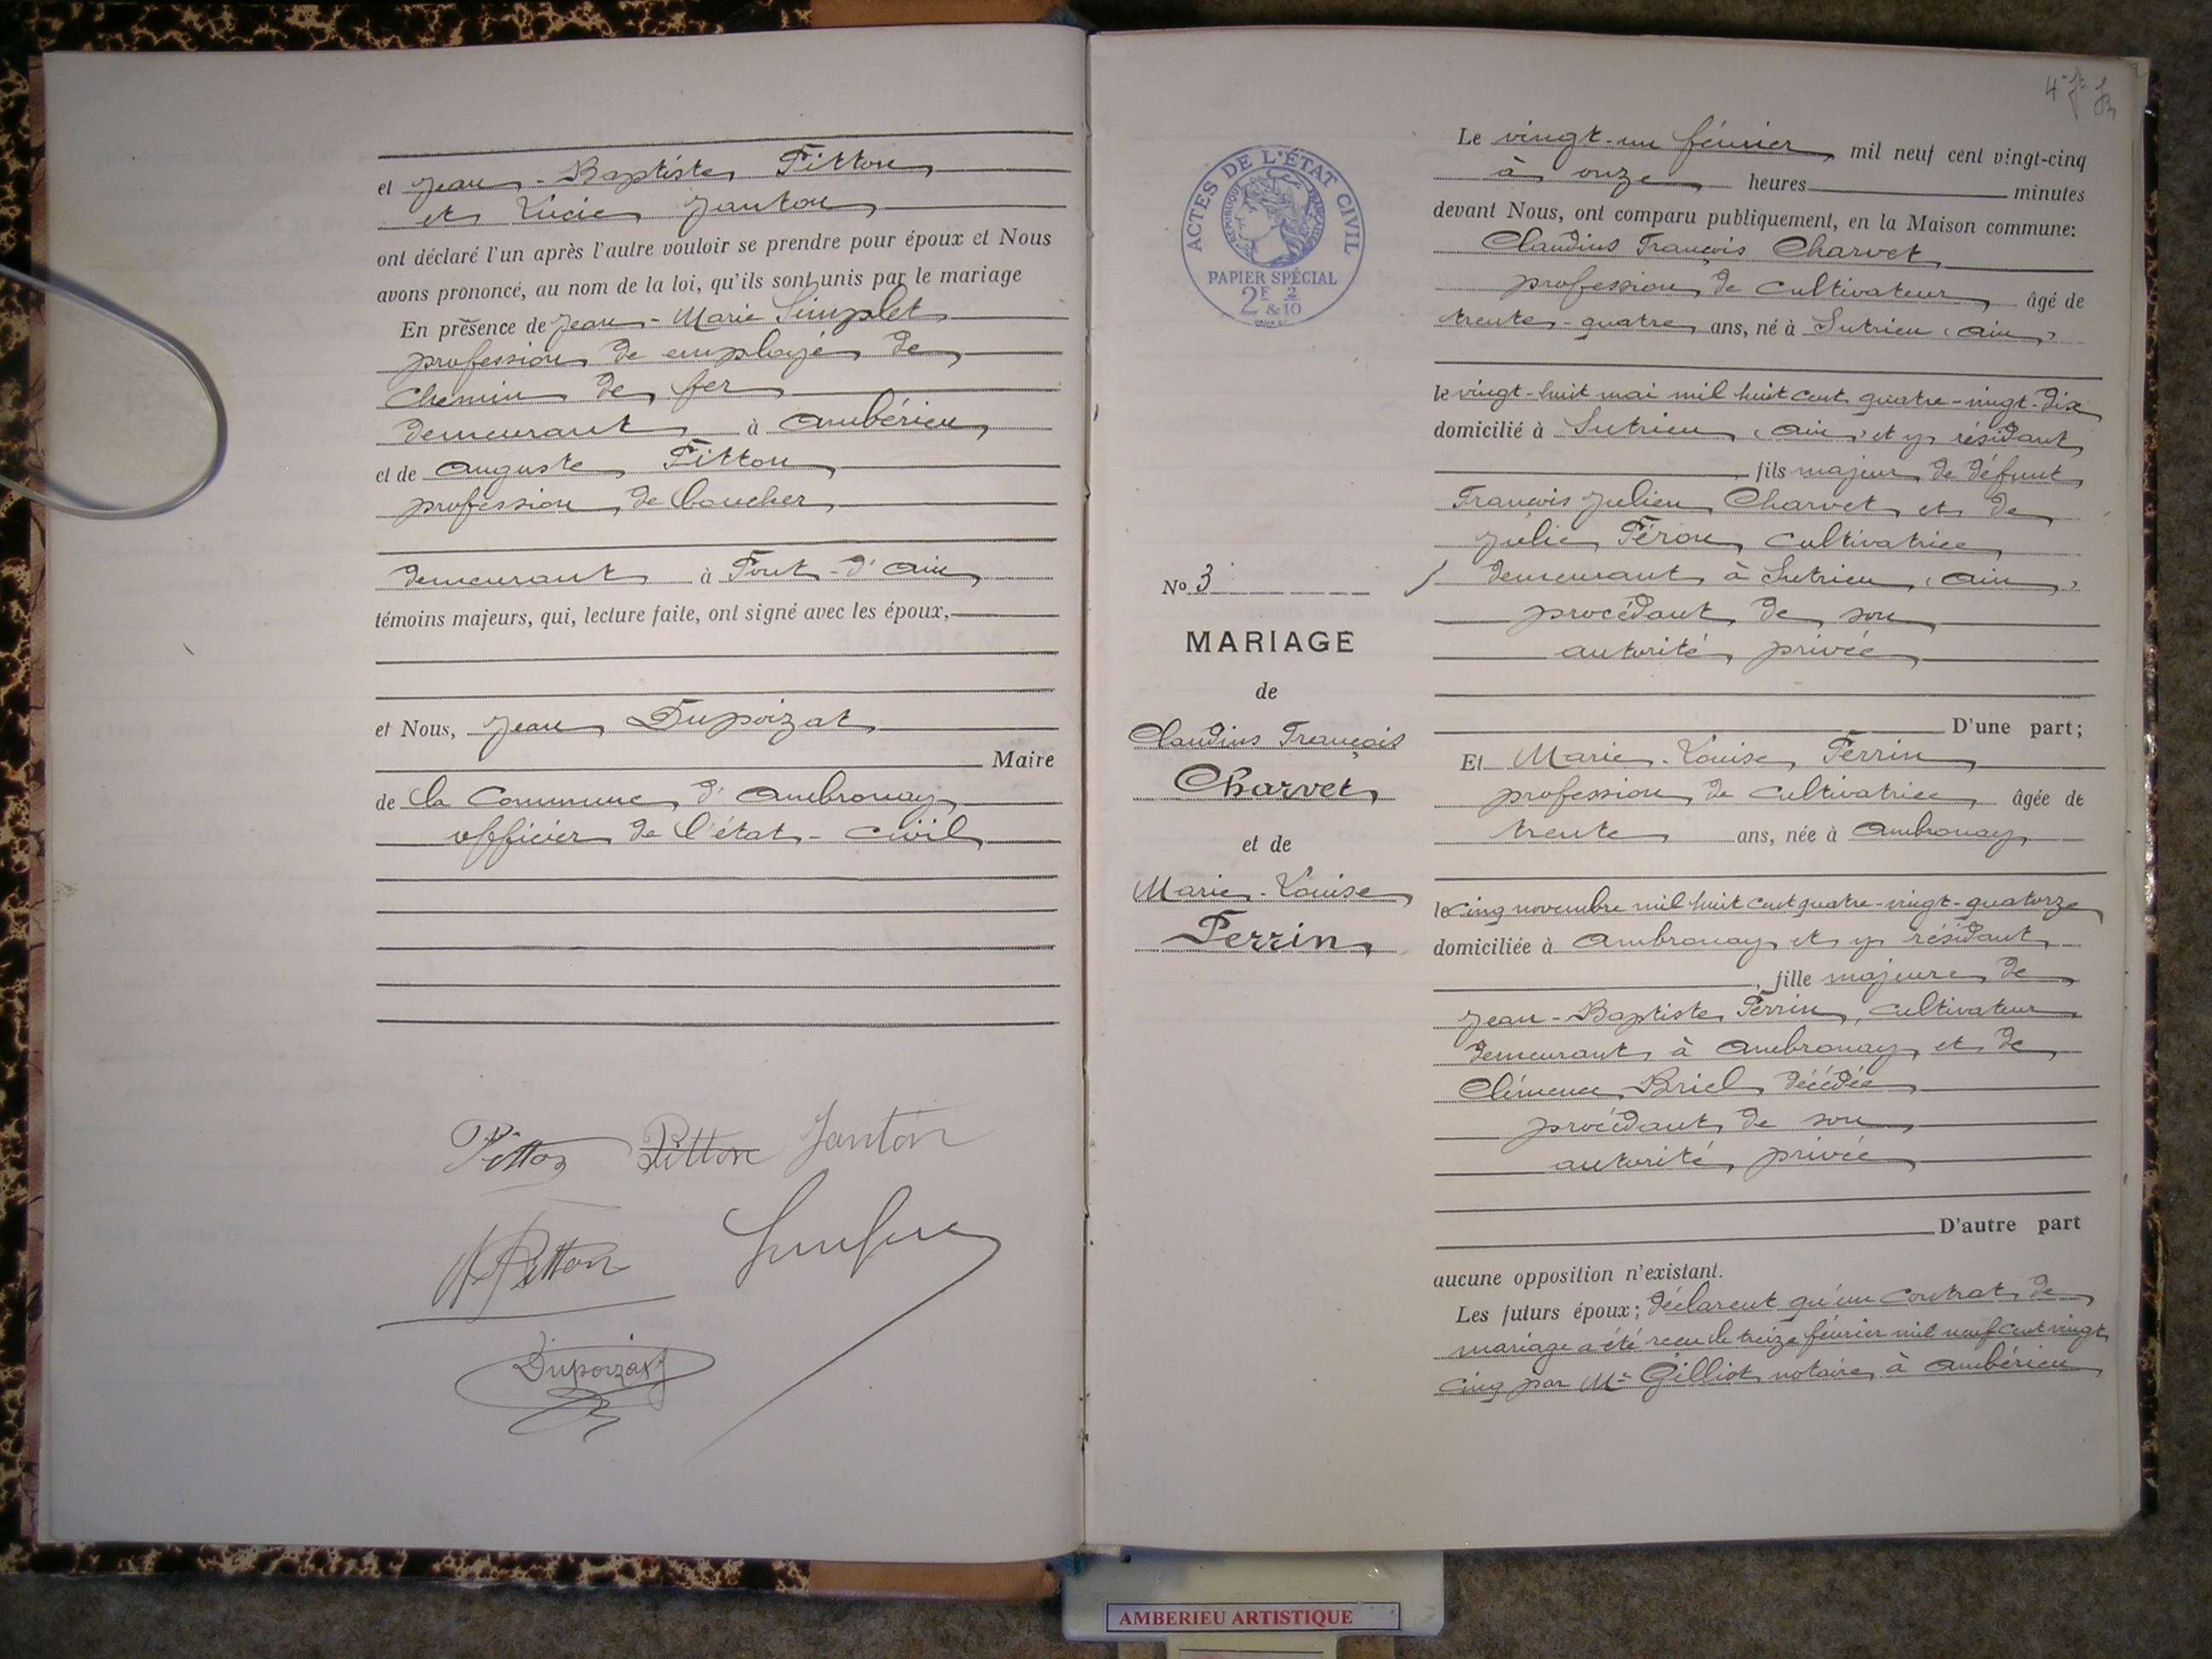 et Jean-Baptiste Pitton
et Lucie Janton
ont déclaré l'un après l'autre vouloir se prendre pour époux et Nous
avons prononcé, au nom de la loi, qu'ils sont unis par le mariage
En présence de Jean-Marie Simplet
profession de employé de
Chemin de fer
demeurant à Ambérieu
et de Auguste Pitton
profession de boucher
demeurant à Pont-d'Ain
témoins majeurs, qui, lecture faite, ont signé avec les époux,
et Nous, Jean Dupoizat
Maire
de la Commune d'Ambronay
officier de l'état-civil
Pitton Pitton Janton
Pitton
Dupoizat
4
Le vingt-un février mil neuf cent vingt-cinq
à onze heures minutes
devant Nous, ont comparu publiquement, en la Maison commune:
Claudius François Charvet
profession de cultivateur âgé de
trente-quatre ans, né à Sutrieu (Ain)
le vingt-huit mai mil huit cent quatre-vingt-dix
domicilié à Sutrieu (Ain) et y résidant
fils majeur de défunt
François Julien Charvet et de
Julie Péron cultivatrice
demeurant à Sutrieu (Ain)
procédant de son
autorité privée
D'une part;
Et Marie-Louise Perrin
profession de cultivatrice âgée de
trente ans, née à Ambronay
le cinq novembre mil huit cent quatre-vingt-quatorze
domiciliée à Ambronay et y résidant
, fille majeure de
Jean-Baptiste Perrin, cultivateur
demeurant à Ambronay et de
Clémence Briel décédée
procédant de son
autorité privée
D'autre part
aucune opposition n'existant.
Les futurs époux; déclarent qu'un contrat de
mariage a été reçu le treize février mil neuf cent vingt
cinq par Me Gilliot notaire à Ambérieu
ACTES DE L'ÉTAT CIVIL
RÉPUBLIQUE FRANÇAISE
PAPIER SPÉCIAL
2F & 2/10
No 3
MARIAGE
de
Claudius François
Charvet
et de
Marie-Louise
Perrin
AMBERIEU ARTISTIQUE